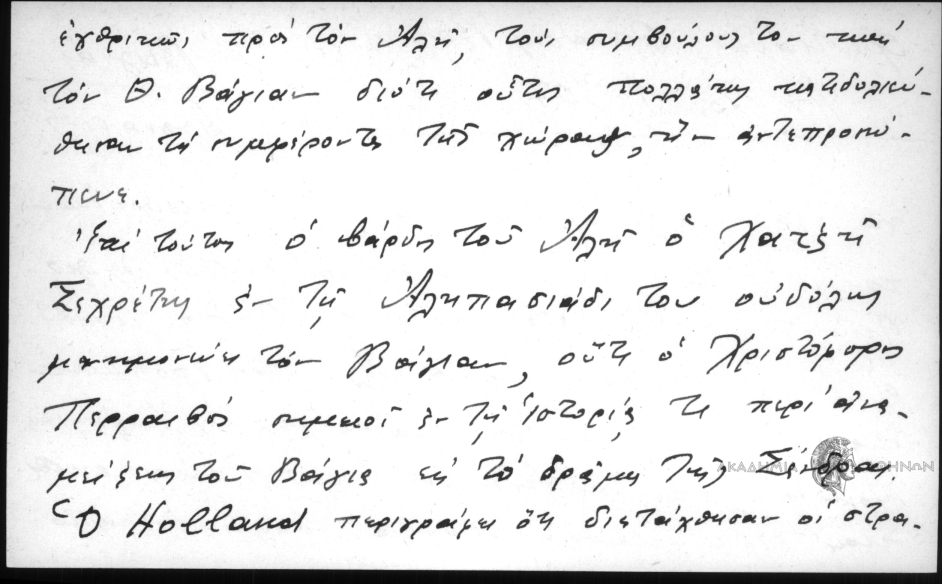 ἐχθρικῶς πρὸς τὸν Ἀλῆ, τοὺς συμβούλους του καὶ
τὸν Θ. Βάγιαν διότι οὗτος πολλάκις
τὰ συμφέροντα τῆς χώρας, ἣν ἀντεπροσώ-
πευε.
τούτοις ὁ βάρδος τοῦ Ἀλῆ ὁ Χατζῆ
Σεχρέτης ἐν τῇ Ἀληπασιάδι του οὐδόλως
μνημονεύει τὸν Βάγιαν, οὔτε ὁ Χριστόφορος
Περραιβὸς ἐν τῇ Ἱστορίᾳ τι περὶ ἀνα-
μείξεως τοῦ Βάγια εἰς τὸ δρᾶμα τῆς
ΑΚΑΔΗΜΙΑ ΑΘΗΝΩΝ
Ὁ Holland περιγράφει ὅτι διετάχθησαν οἱ στρα-